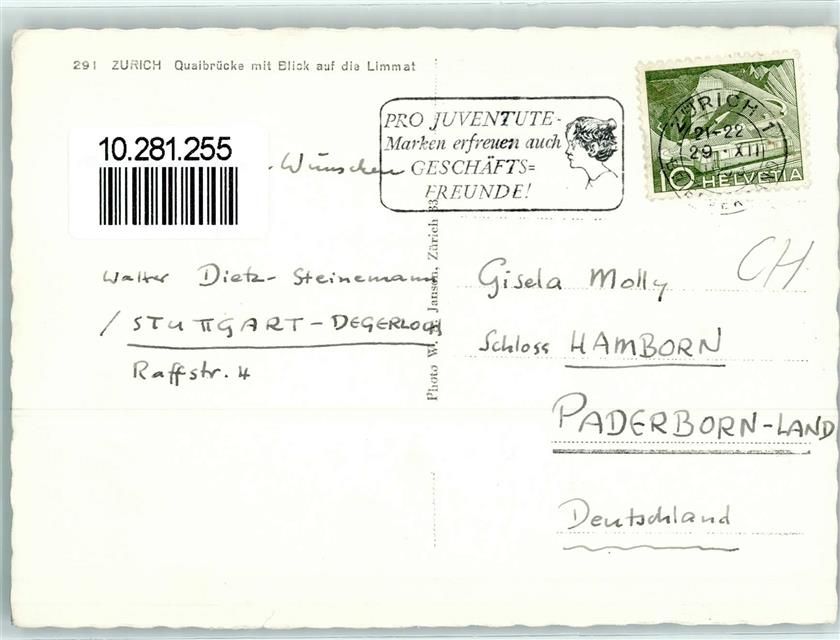 291 ZÜRICH Quaibrücke mit Blick auf die Limmat
PRO JUVENTUTE-
Marken erfreuen auch
GESCHÄFTS=
FREUNDE!
ZÜRICH 1
21-22
29. XII
10 HELVETIA
10.281.255
Wünschen
Walter Dietz-Steinemann
/ STUTTGART-DEGERLOCH
Raffstr. 4
Photo W. Jansen, Zürich 33
CH
Gisela Molly
Schloss HAMBORN
PADERBORN-LAND
Deutschland